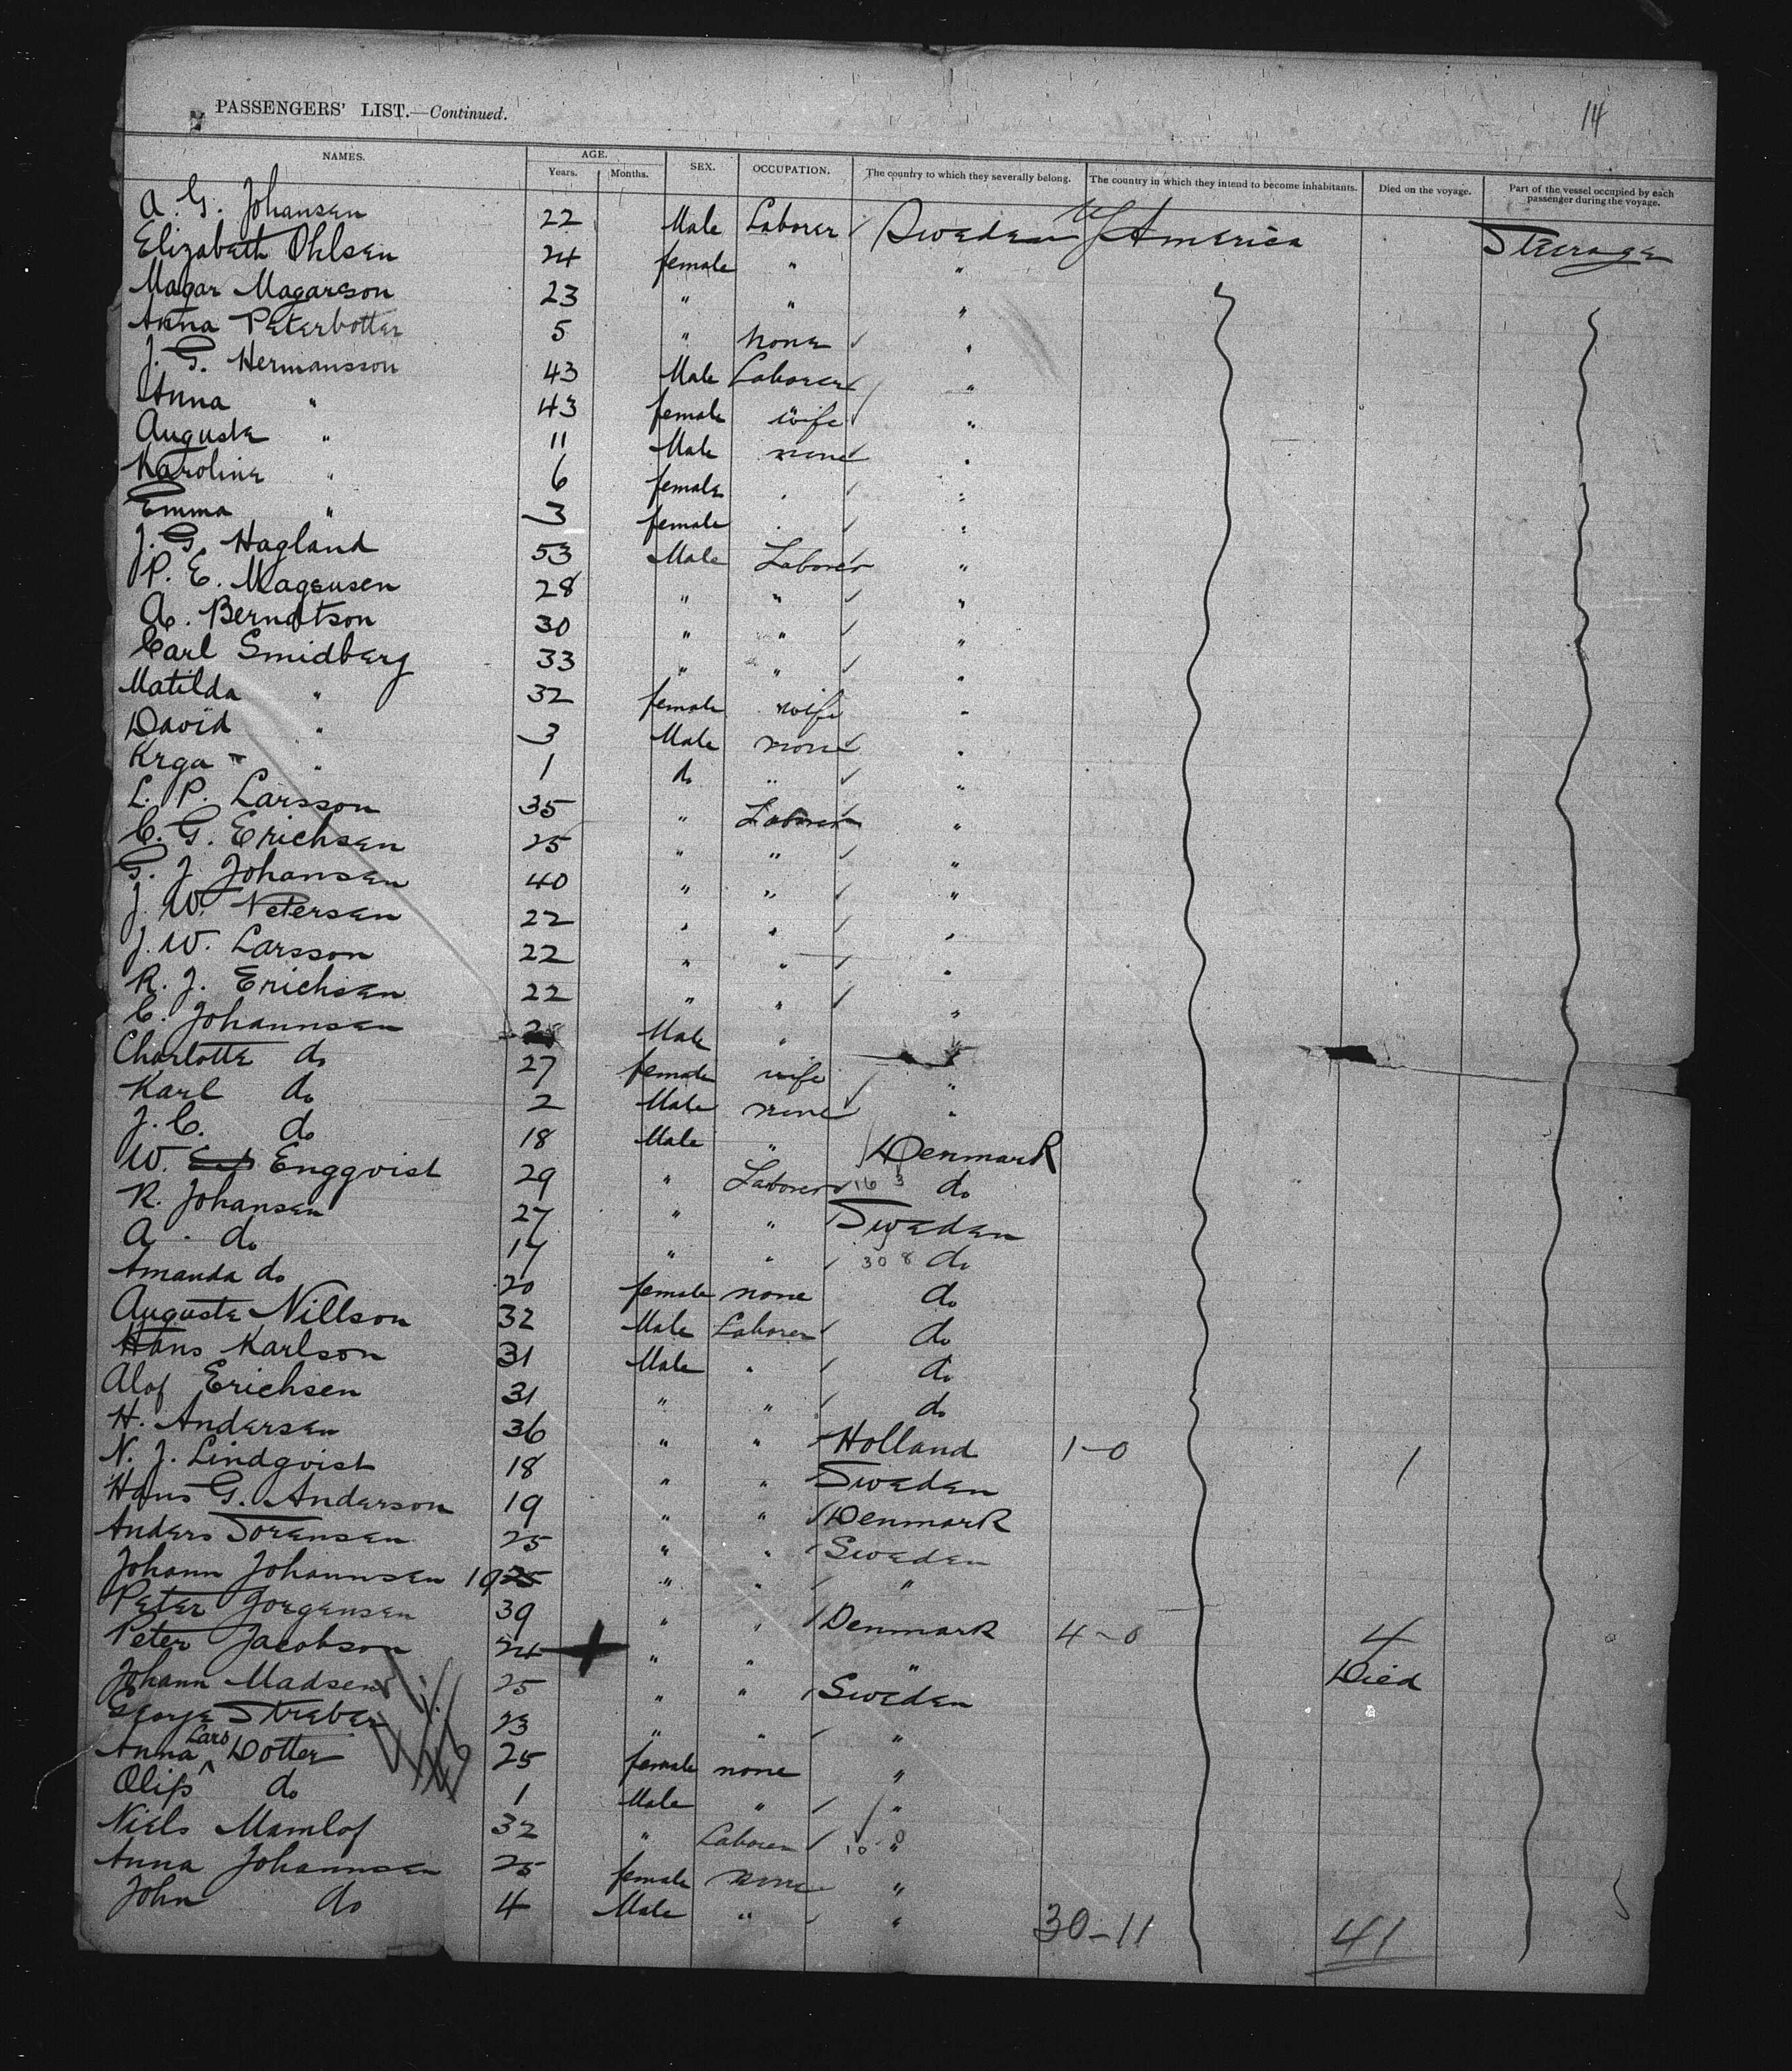 14
PASSENGERS' LIST.—Continued.
NAMES. AGE. Years. Months. SEX. OCCUPATION. The country to which they severally belong. The country in which they intend to become inhabitants. Died on the voyage. Part of the vessel occupied by each passenger during the voyage.
A. G. Johansen 22 Male Laborer Sweden US America Steerage
Elizabeth Ohlsen 24 female " "
Magar Magarson 23 " " "
Anna Peterbotter 5 " none "
J. G. Hermansson 43 Male Laborer "
Anna " 43 female wife "
Auguste " 11 Male none "
Karoline " 6 female " "
Emma " 3 female " "
J. G. Hagland 53 Male Laborer "
P. E. Mageusen 28 " " "
A. Berndtson 30 " " "
Carl Smidberg 33 " " "
Matilda " 32 female wife "
David " 3 Male none "
Krga " 1 do " "
L. P. Larsson 35 " Laborer "
C. G. Erichsen 25 " " "
G. J. Johansen 40 " " "
J. W. Petersen 22 " " "
J. W. Larsson 22 " " "
R. J. Erichsen 22 " " "
C. Johannsen Male "
Charlotte do 27 female wife "
Karl do 2 Male none "
J. C. do 18 Male " Denmark
W. Engqvist 29 " Laborer 16 3 do
R. Johansen 27 " " Sweden
A. do 17 " " 30 8 do
Amanda do 20 female none do
Auguste Nillson 32 Male Laborer do
Hans Karlson 31 Male " do
Alof Erichsen 31 " " do
H. Andersen 36 " " Holland 1-0 1
N. J. Lindqvist 18 " " Sweden
Hans G. Anderson 19 " " Denmark
Anders Sorensen 25 " " Sweden
Johann Johannsen 19 25 " " "
Peter Jorgensen 39 " " Denmark 4-0 4
Peter Jacobson 24 " " " Died
Johann Madsen 25 " " Sweden
George Streber 23 " " "
Anna Lars Dotter 25 female none "
Olifs do 1 Male " "
Niels Mamlof 32 " Laborer 10 0 "
Anna Johannsen 25 female none "
John do 4 Male " "
30-11 41